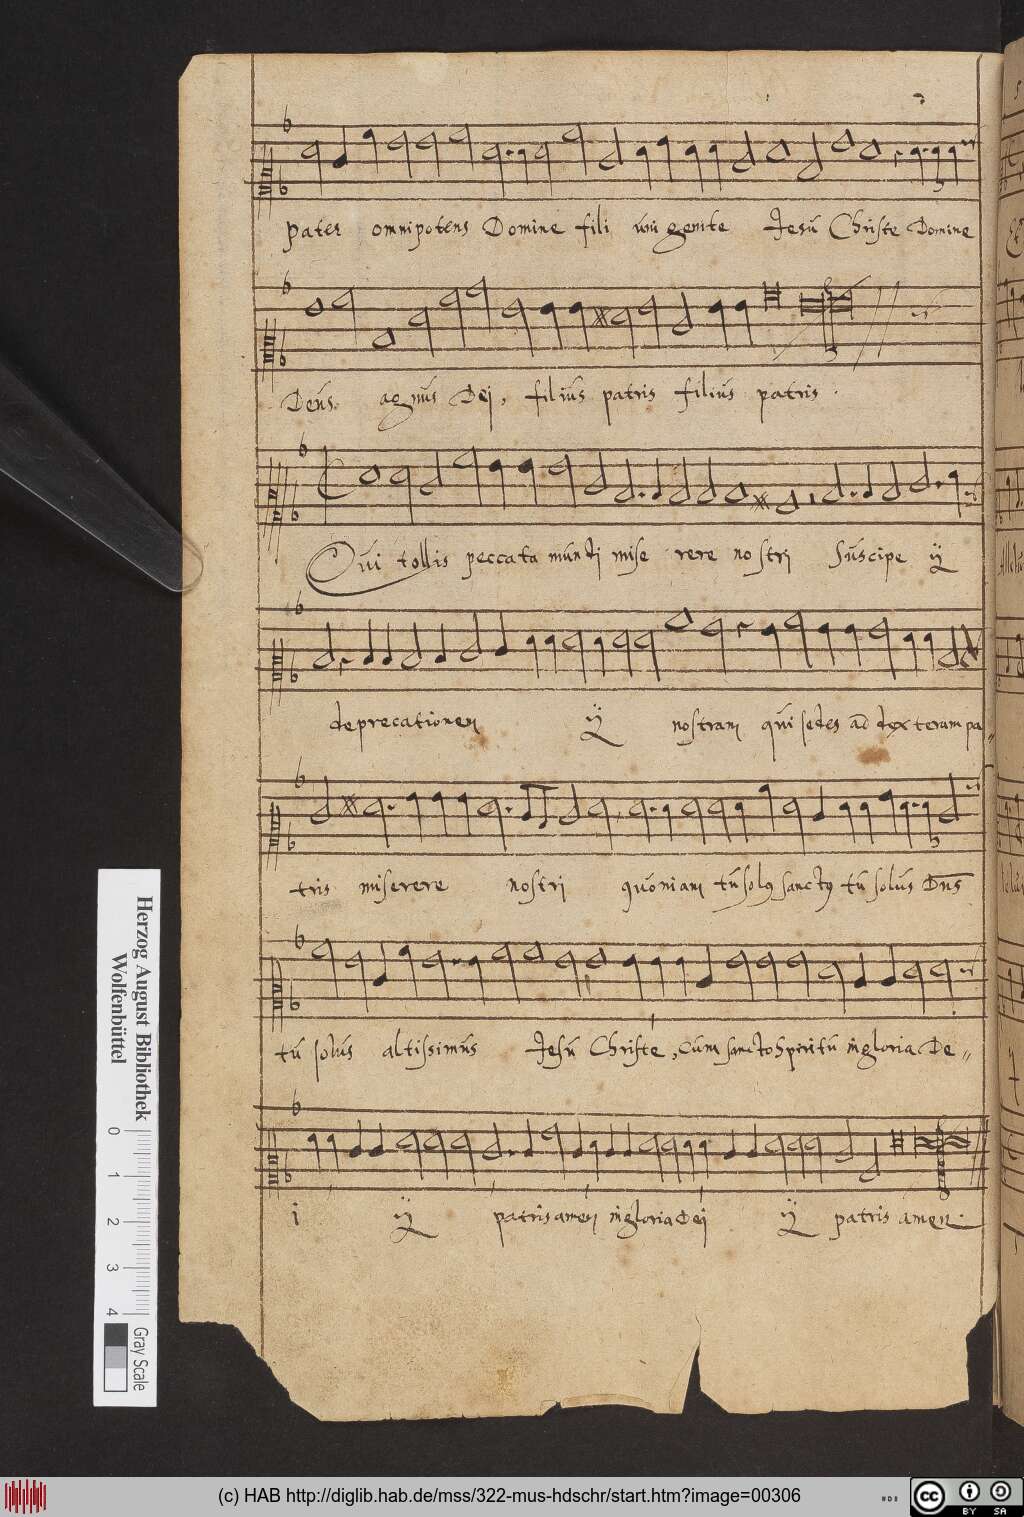 pater omnipotens Domine fili uni genite Jesū Christe Domine
Deūs. agnūs Dei, filiūs patris filiūs patris.
Qui tollis peccata mūndi mise rere nostri Sūscipe ij
deprecationem ij nostram qūi sedes ad dexteram pa-
tris miserere nostri quoniam tū solꝰ sanctꝰ tū solūs Dn̄s
tū solūs altissimūs Jesū Christe, Cum sancto Spiritū in gloria De-
i ij patris amen in gloria Dei ij patris amen.
Herzog August Bibliothek
Wolfenbüttel
0 1 2 3 4
Gray Scale
(c) HAB http://diglib.hab.de/mss/322-mus-hdschr/start.htm?image=00306
cc BY SA